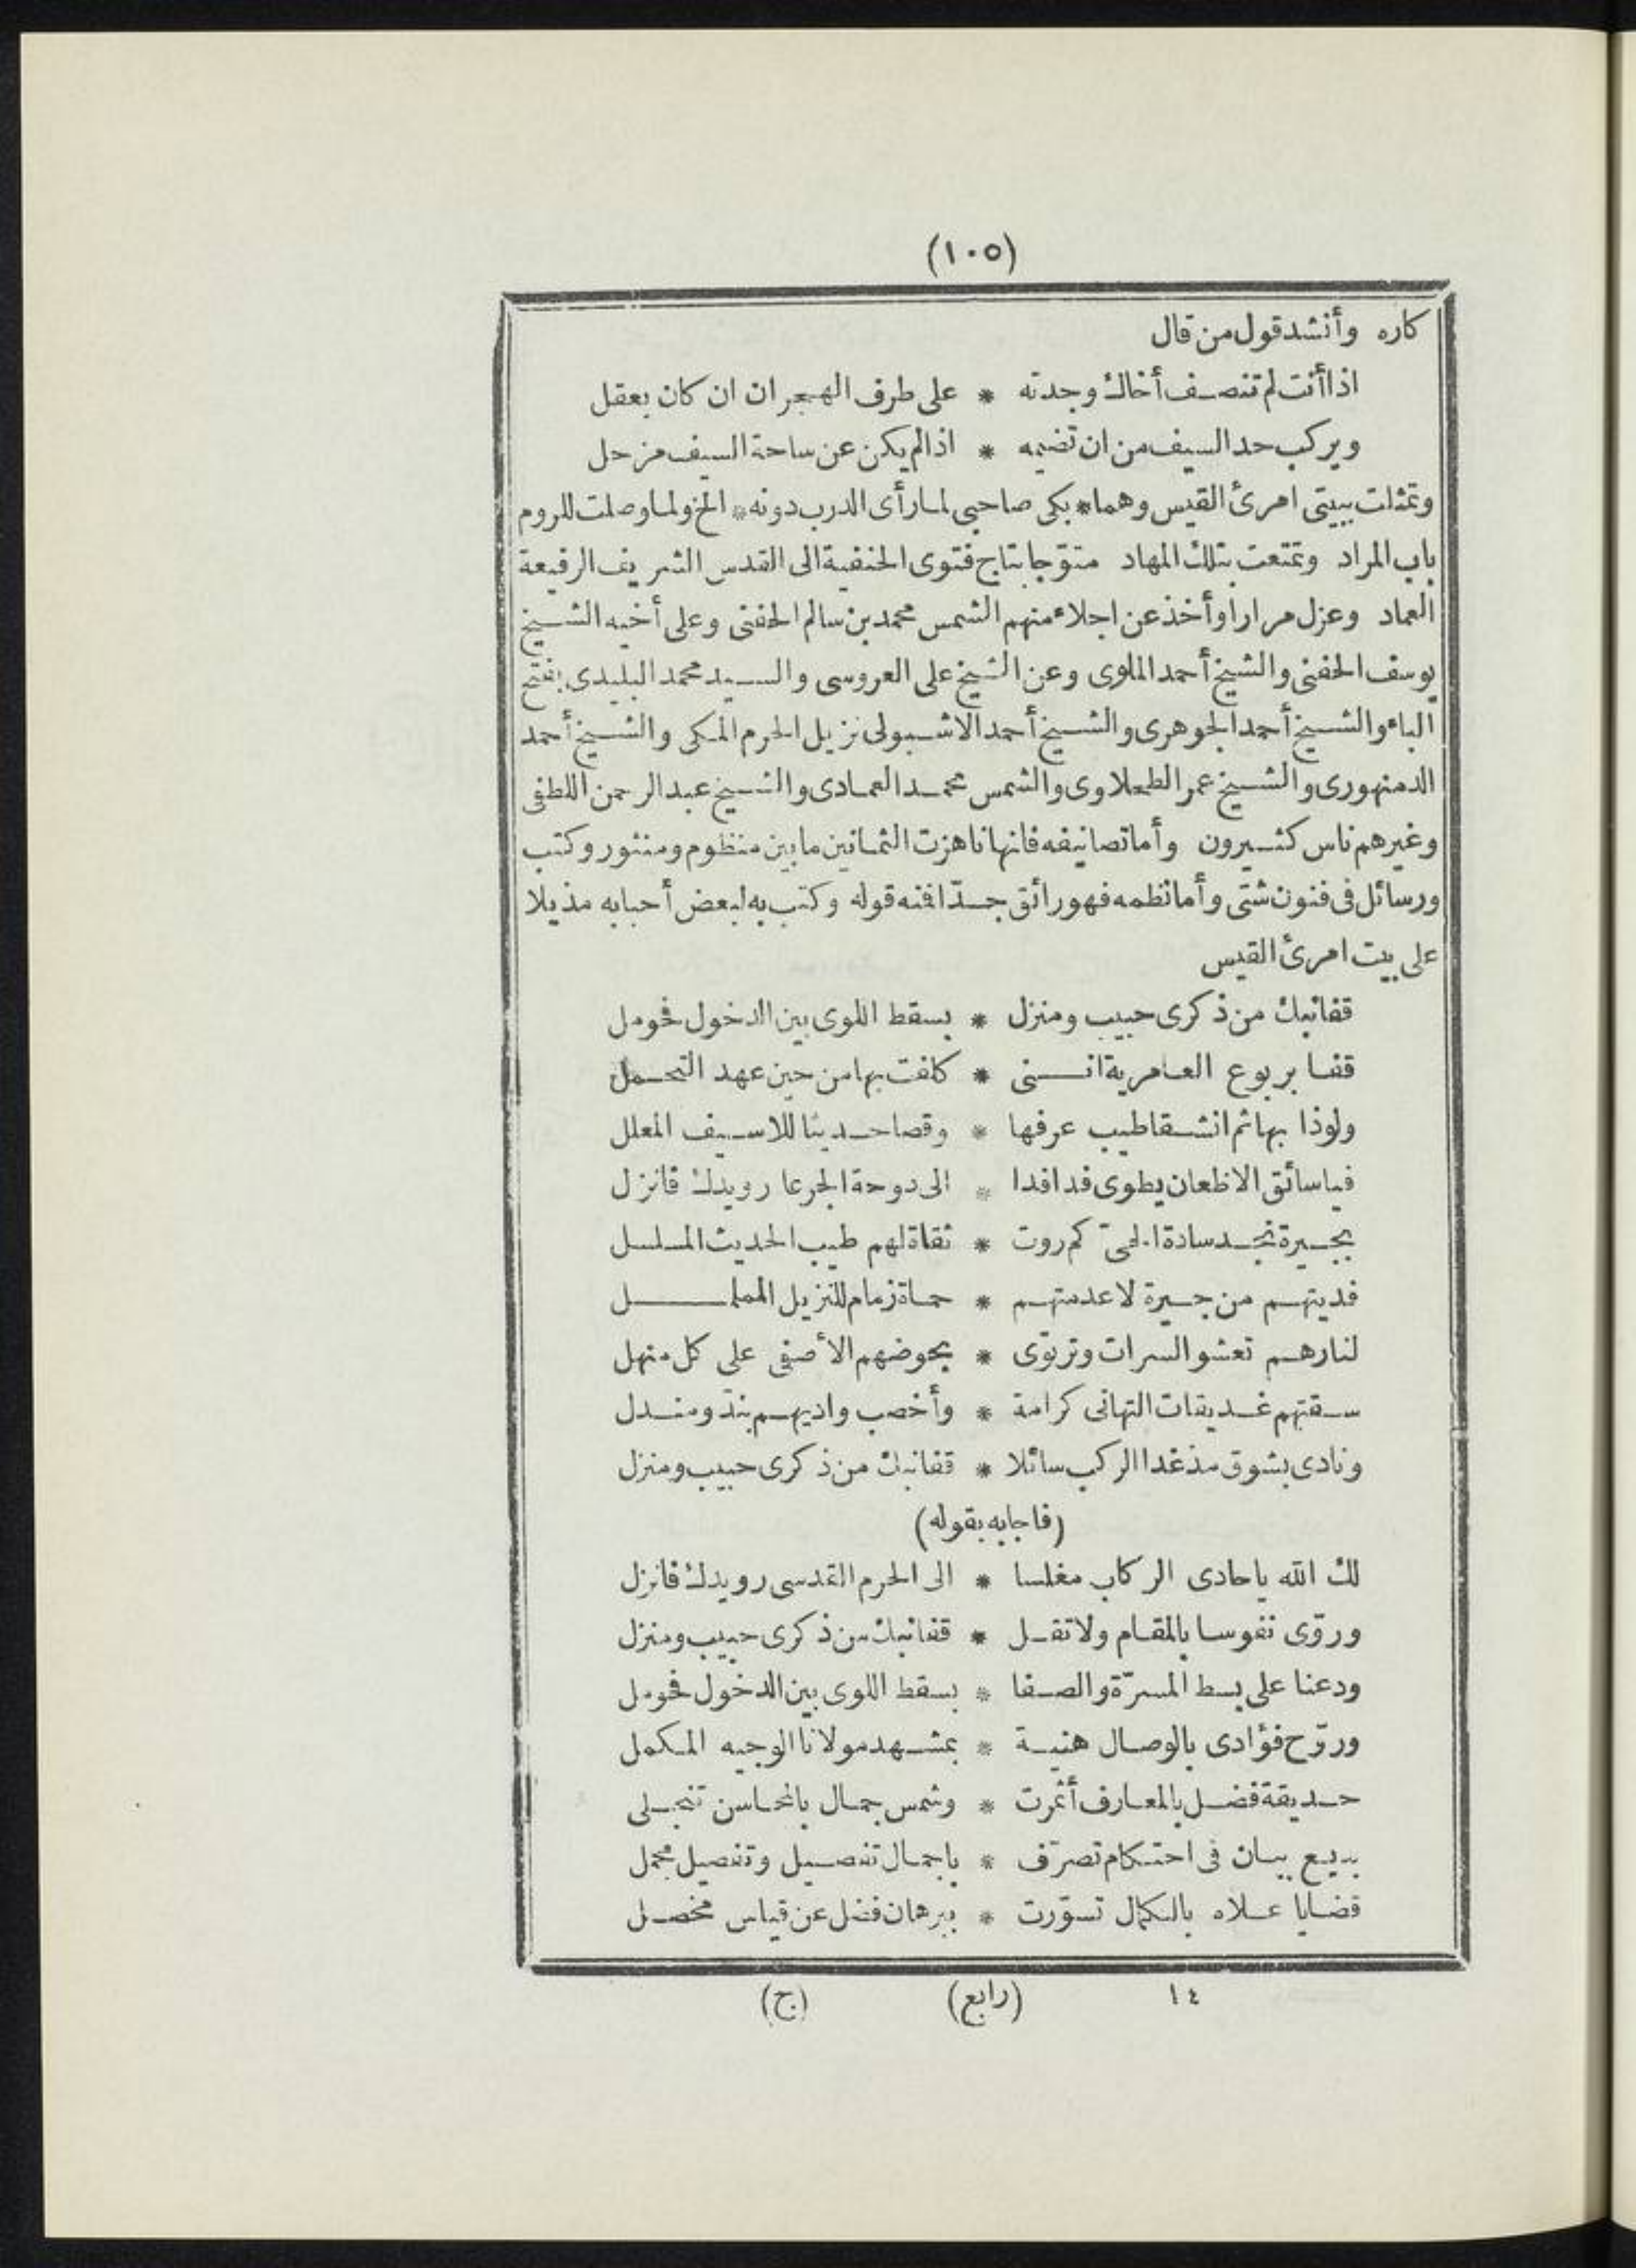 (١٠٥)
كاره وأنشد قول من قال
اذا أنت لم تنصف أخاك وجدته * على طرف الهجران ان كان يعقل
ويركب حد السيف من ان تضيمه * اذا لم يكن عن ساحة السيف مزحل
وتمثلت ببيتى امرئ القيس وهما * بكى صاحبى لما رأى الدرب دونه * الخ ولما وصلت للروم
باب المراد وتمتعت بتلك المهاد متوّجا بتاج فتوى الحنفية الى القدس الشريف الرفيعة
العماد وعزل مرارا وأخذ عن اجلاء منهم الشمس محمد بن سالم الحفنى وعلى أخيه الشيخ
يوسف الحفنى والشيخ أحمد الملوى وعن الشيخ على العروسى والسيد محمد البليدى بفتح
الباء والشيخ أحمد الجوهرى والشيخ أحمد الاشبولى نزيل الحرم المكى والشيخ أحمد
الدمنهورى والشيخ عمر الطحلاوى والشمس محمد العمادى والشيخ عبد الرحمن اللطفى
وغيرهم ناس كثيرون وأما تصانيفه فانها ناهزت الثمانين ما بين منظوم ومنثور وكتب
ورسائل فى فنون شتى وأما نظمه فهو رائق جدّا فمنه قوله وكتب به لبعض أحبابه مذيلا
على بيت امرئ القيس
قفا نبك من ذكرى حبيب ومنزل * بسقط اللوى بين الدخول فحومل
قفا بربوع العامرية اننى * كلفت بها من حين عهد التحمل
ولوذا بها ثم انشقا طيب عرفها * وقصا حديثا للاسيف المعلل
فيا سائق الاظعان يطوى فدافدا * الى دوحة الجرعا رويدك فانزل
بجيرة نجد سادة الحىّ كم روت * ثقاة لهم طيب الحديث المسلسل
فديتهم من جيرة لا عدمتهم * حماة زمام للنزيل المململ
لنارهم تعشو السرات وترتوى * بحوضهم الأصفى على كل منهل
سقتهم غديقات التهانى كرامة * وأخصب واديهم بندّ ومندل
ونادى بشوق مذ غدا الركب سائلا * قفا نبك من ذكرى حبيب ومنزل
(فاجابه بقوله)
لك الله يا حادى الركاب مغلسا * الى الحرم القدسى رويدك فانزل
وروّى نفوسا بالمقام ولا تقل * قفا نبك من ذكرى حبيب ومنزل
ودعنا على بسط المسرّة والصفا * بسقط اللوى بين الدخول فحومل
وروّح فؤادى بالوصال هنية * بمشهد مولانا الوجيه المكمل
حديقة فضل بالمعارف أثمرت * وشمس جمال بالمحاسن تنجلى
بديع بيان فى احتكام تصرّف * باجمال تفصيل وتفصيل مجمل
قضايا علاه بالكمال تسوّرت * ببرهان فضل عن قياس محصل
١٤ (رابع) (ج)